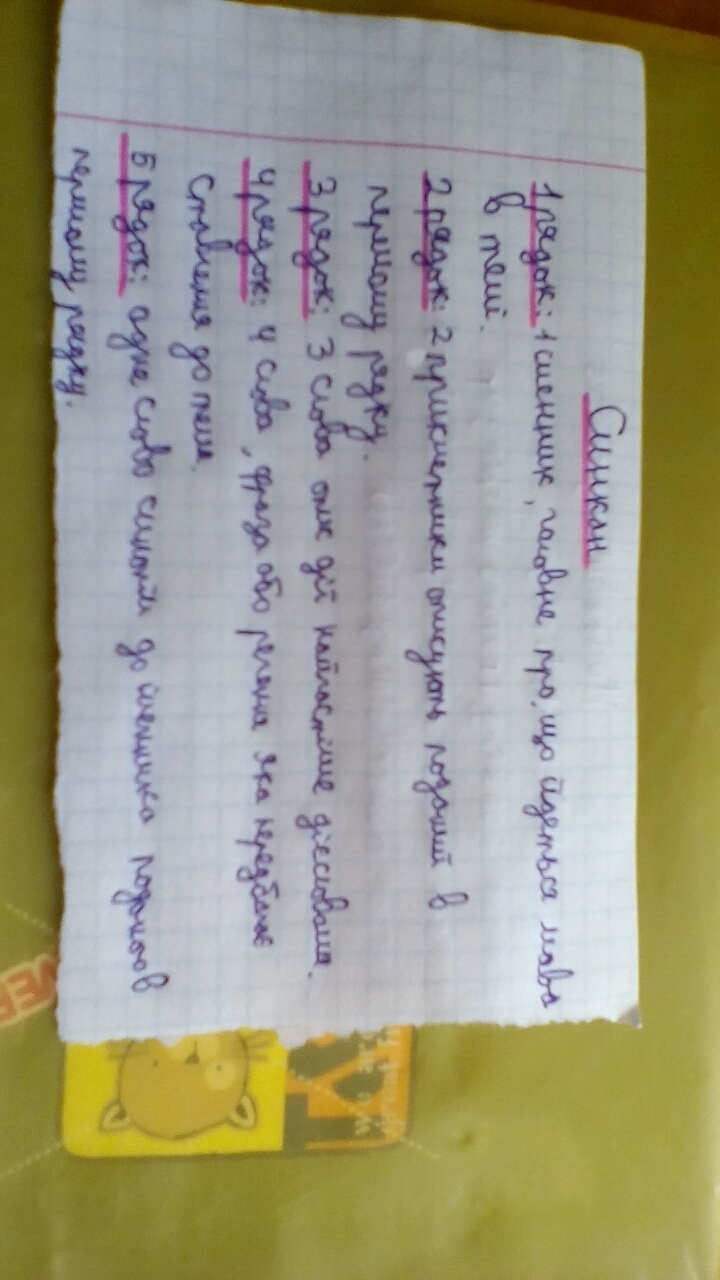 Сінкан
1 рядок: 1 іменник, головне про, що йдеться мова
в темі.
2 рядок: 2 прикметники описують поданий в
першому рядку.
3 рядок: 3 слова опис дії найчастіше дієслова.
4 рядок: 4 слова, фраза або речення яка передбачає
ставлення до теми.
5 рядок: одне слово синонім до іменника поданого в
першому рядку.